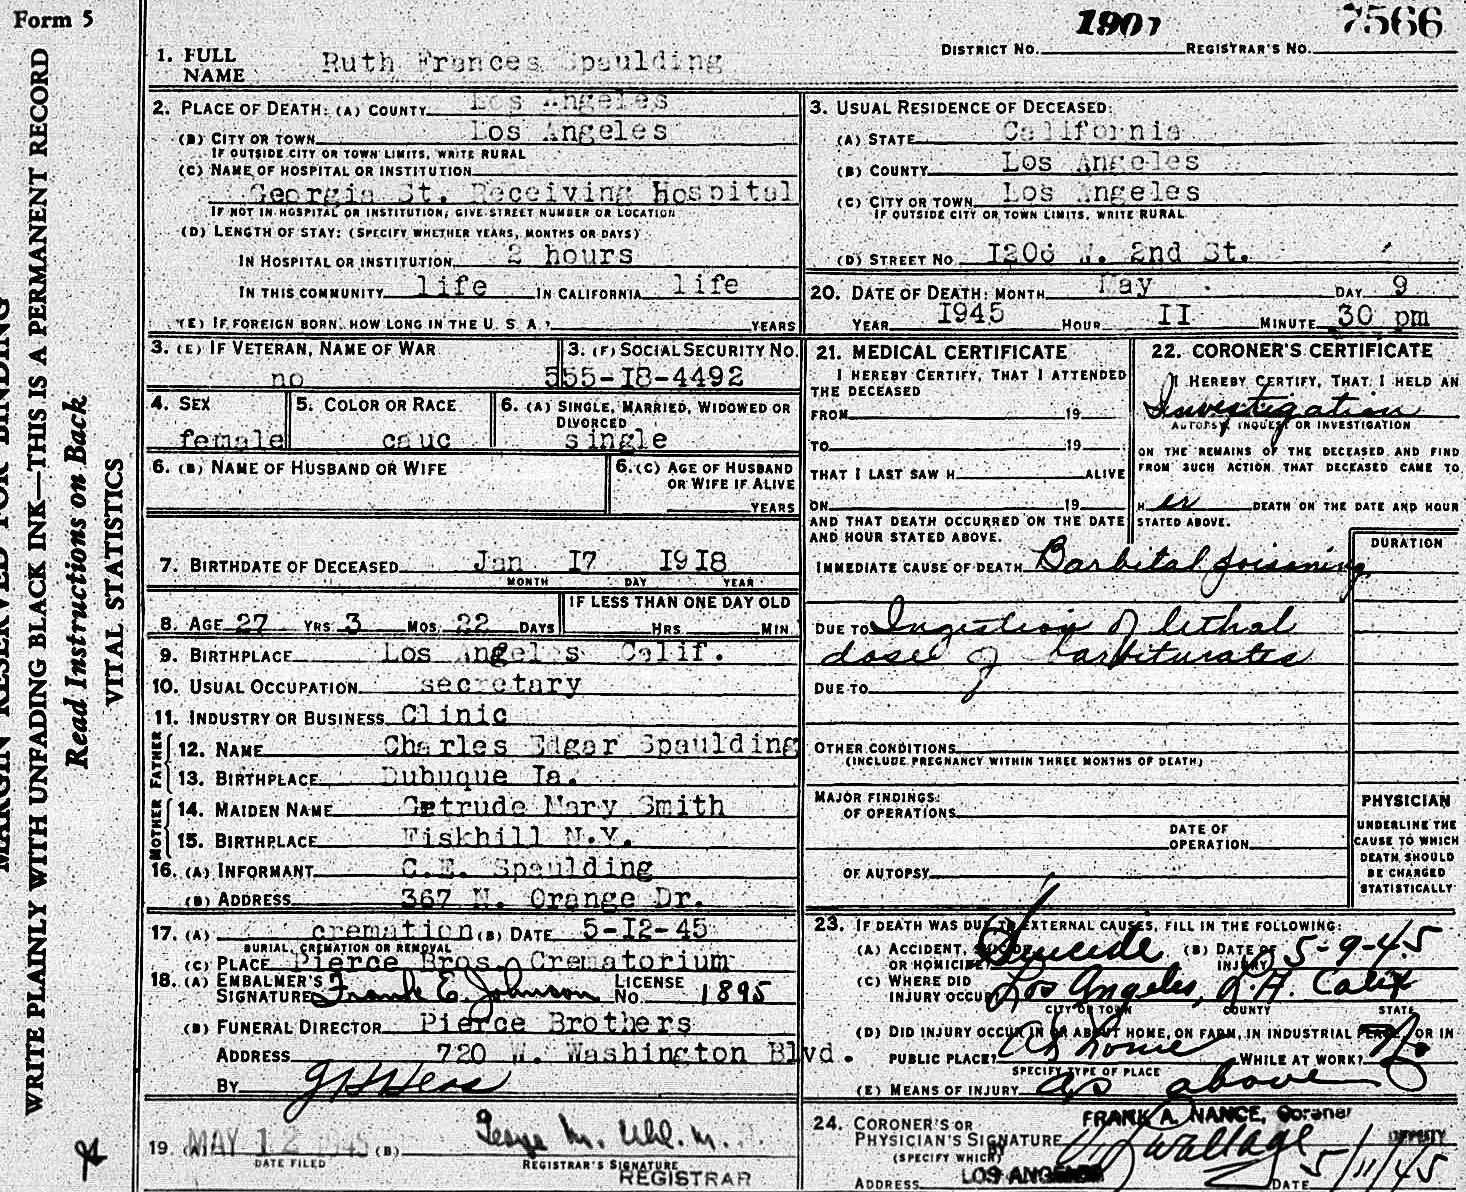 Form 5
1901 7566
DISTRICT NO. REGISTRAR'S NO.
1. FULL NAME Ruth Frances Spaulding
2. PLACE OF DEATH: (A) COUNTY Los Angeles
(B) CITY OR TOWN Los Angeles
IF OUTSIDE CITY OR TOWN LIMITS, WRITE RURAL
(C) NAME OF HOSPITAL OR INSTITUTION
Georgia St. Receiving Hospital
IF NOT IN HOSPITAL OR INSTITUTION, GIVE STREET NUMBER OR LOCATION
(D) LENGTH OF STAY: (SPECIFY WHETHER YEARS, MONTHS OR DAYS)
IN HOSPITAL OR INSTITUTION 2 hours
IN THIS COMMUNITY life IN CALIFORNIA life
(E) IF FOREIGN BORN, HOW LONG IN THE U. S. A.? YEARS
3. USUAL RESIDENCE OF DECEASED:
(A) STATE California
(B) COUNTY Los Angeles
(C) CITY OR TOWN Los Angeles
IF OUTSIDE CITY OR TOWN LIMITS, WRITE RURAL
(D) STREET NO. 1206 W. 2nd St.
20. DATE OF DEATH: MONTH May DAY 9
YEAR 1945 HOUR II MINUTE 30 pm
3. (E) IF VETERAN, NAME OF WAR
no
3. (F) SOCIAL SECURITY NO.
555-18-4492
4. SEX
female
5. COLOR OR RACE
cauc
6. (A) SINGLE, MARRIED, WIDOWED OR DIVORCED
single
6. (B) NAME OF HUSBAND OR WIFE
6. (C) AGE OF HUSBAND OR WIFE IF ALIVE
YEARS
7. BIRTHDATE OF DECEASED Jan 17 1918
MONTH DAY YEAR
8. AGE 27 YRS 3 MOS. 22 DAYS
IF LESS THAN ONE DAY OLD
HRS. MIN.
9. BIRTHPLACE Los Angeles Calif.
10. USUAL OCCUPATION secretary
11. INDUSTRY OR BUSINESS Clinic
FATHER
12. NAME Charles Edgar Spaulding
13. BIRTHPLACE Dubuque Ia.
MOTHER
14. MAIDEN NAME Gertrude Mary Smith
15. BIRTHPLACE Fiskhill N.Y.
16. (A) INFORMANT C.E. Spaulding
(B) ADDRESS 367 N. Orange Dr.
17. (A) cremation (B) DATE 5-12-45
BURIAL, CREMATION OR REMOVAL
(C) PLACE Pierce Bros. Crematorium
18. (A) EMBALMER'S SIGNATURE Frank E. Johnson LICENSE NO. 1895
(B) FUNERAL DIRECTOR Pierce Brothers
ADDRESS 720 W. Washington Blvd.
BY
19. (A) MAY 12 1945 (B) George M. Uhl, M.D.
DATE FILED REGISTRAR'S SIGNATURE
REGISTRAR
21. MEDICAL CERTIFICATE
I HEREBY CERTIFY, THAT I ATTENDED
THE DECEASED
FROM 19
TO 19
THAT I LAST SAW H ALIVE
ON 19
AND THAT DEATH OCCURRED ON THE DATE
AND HOUR STATED ABOVE.
22. CORONER'S CERTIFICATE
I HEREBY CERTIFY, THAT I HELD AN
Investigation
AUTOPSY, INQUEST OR INVESTIGATION
ON THE REMAINS OF THE DECEASED AND FIND
FROM SUCH ACTION THAT DECEASED CAME TO
H er DEATH ON THE DATE AND HOUR
STATED ABOVE.
DURATION
IMMEDIATE CAUSE OF DEATH Barbital poisoning
DUE TO Ingestion of lethal
dose of barbiturates
DUE TO
OTHER CONDITIONS
(INCLUDE PREGNANCY WITHIN THREE MONTHS OF DEATH)
MAJOR FINDINGS:
OF OPERATIONS
DATE OF
OPERATION
OF AUTOPSY
PHYSICIAN
UNDERLINE THE
CAUSE TO WHICH
DEATH SHOULD
BE CHARGED
STATISTICALLY
23. IF DEATH WAS DUE TO EXTERNAL CAUSES, FILL IN THE FOLLOWING:
(A) ACCIDENT, SUICIDE OR HOMICIDE? Suicide (B) DATE OF INJURY 5-9-45
(C) WHERE DID INJURY OCCUR? Los Angeles, L.A. Calif
CITY OR TOWN COUNTY STATE
(D) DID INJURY OCCUR IN OR ABOUT HOME, ON FARM, IN INDUSTRIAL PLACE, OR IN
PUBLIC PLACE? At home WHILE AT WORK? No
SPECIFY TYPE OF PLACE
(E) MEANS OF INJURY as above
24. CORONER'S OR PHYSICIAN'S SIGNATURE FRANK A. NANCE, Coroner
(SPECIFY WHICH) BY Wallage DEPUTY
ADDRESS LOS ANGELES DATE 5/11/45
MARGIN RESERVED FOR BINDING
WRITE PLAINLY WITH UNFADING BLACK INK—THIS IS A PERMANENT RECORD
Read Instructions on Back
VITAL STATISTICS